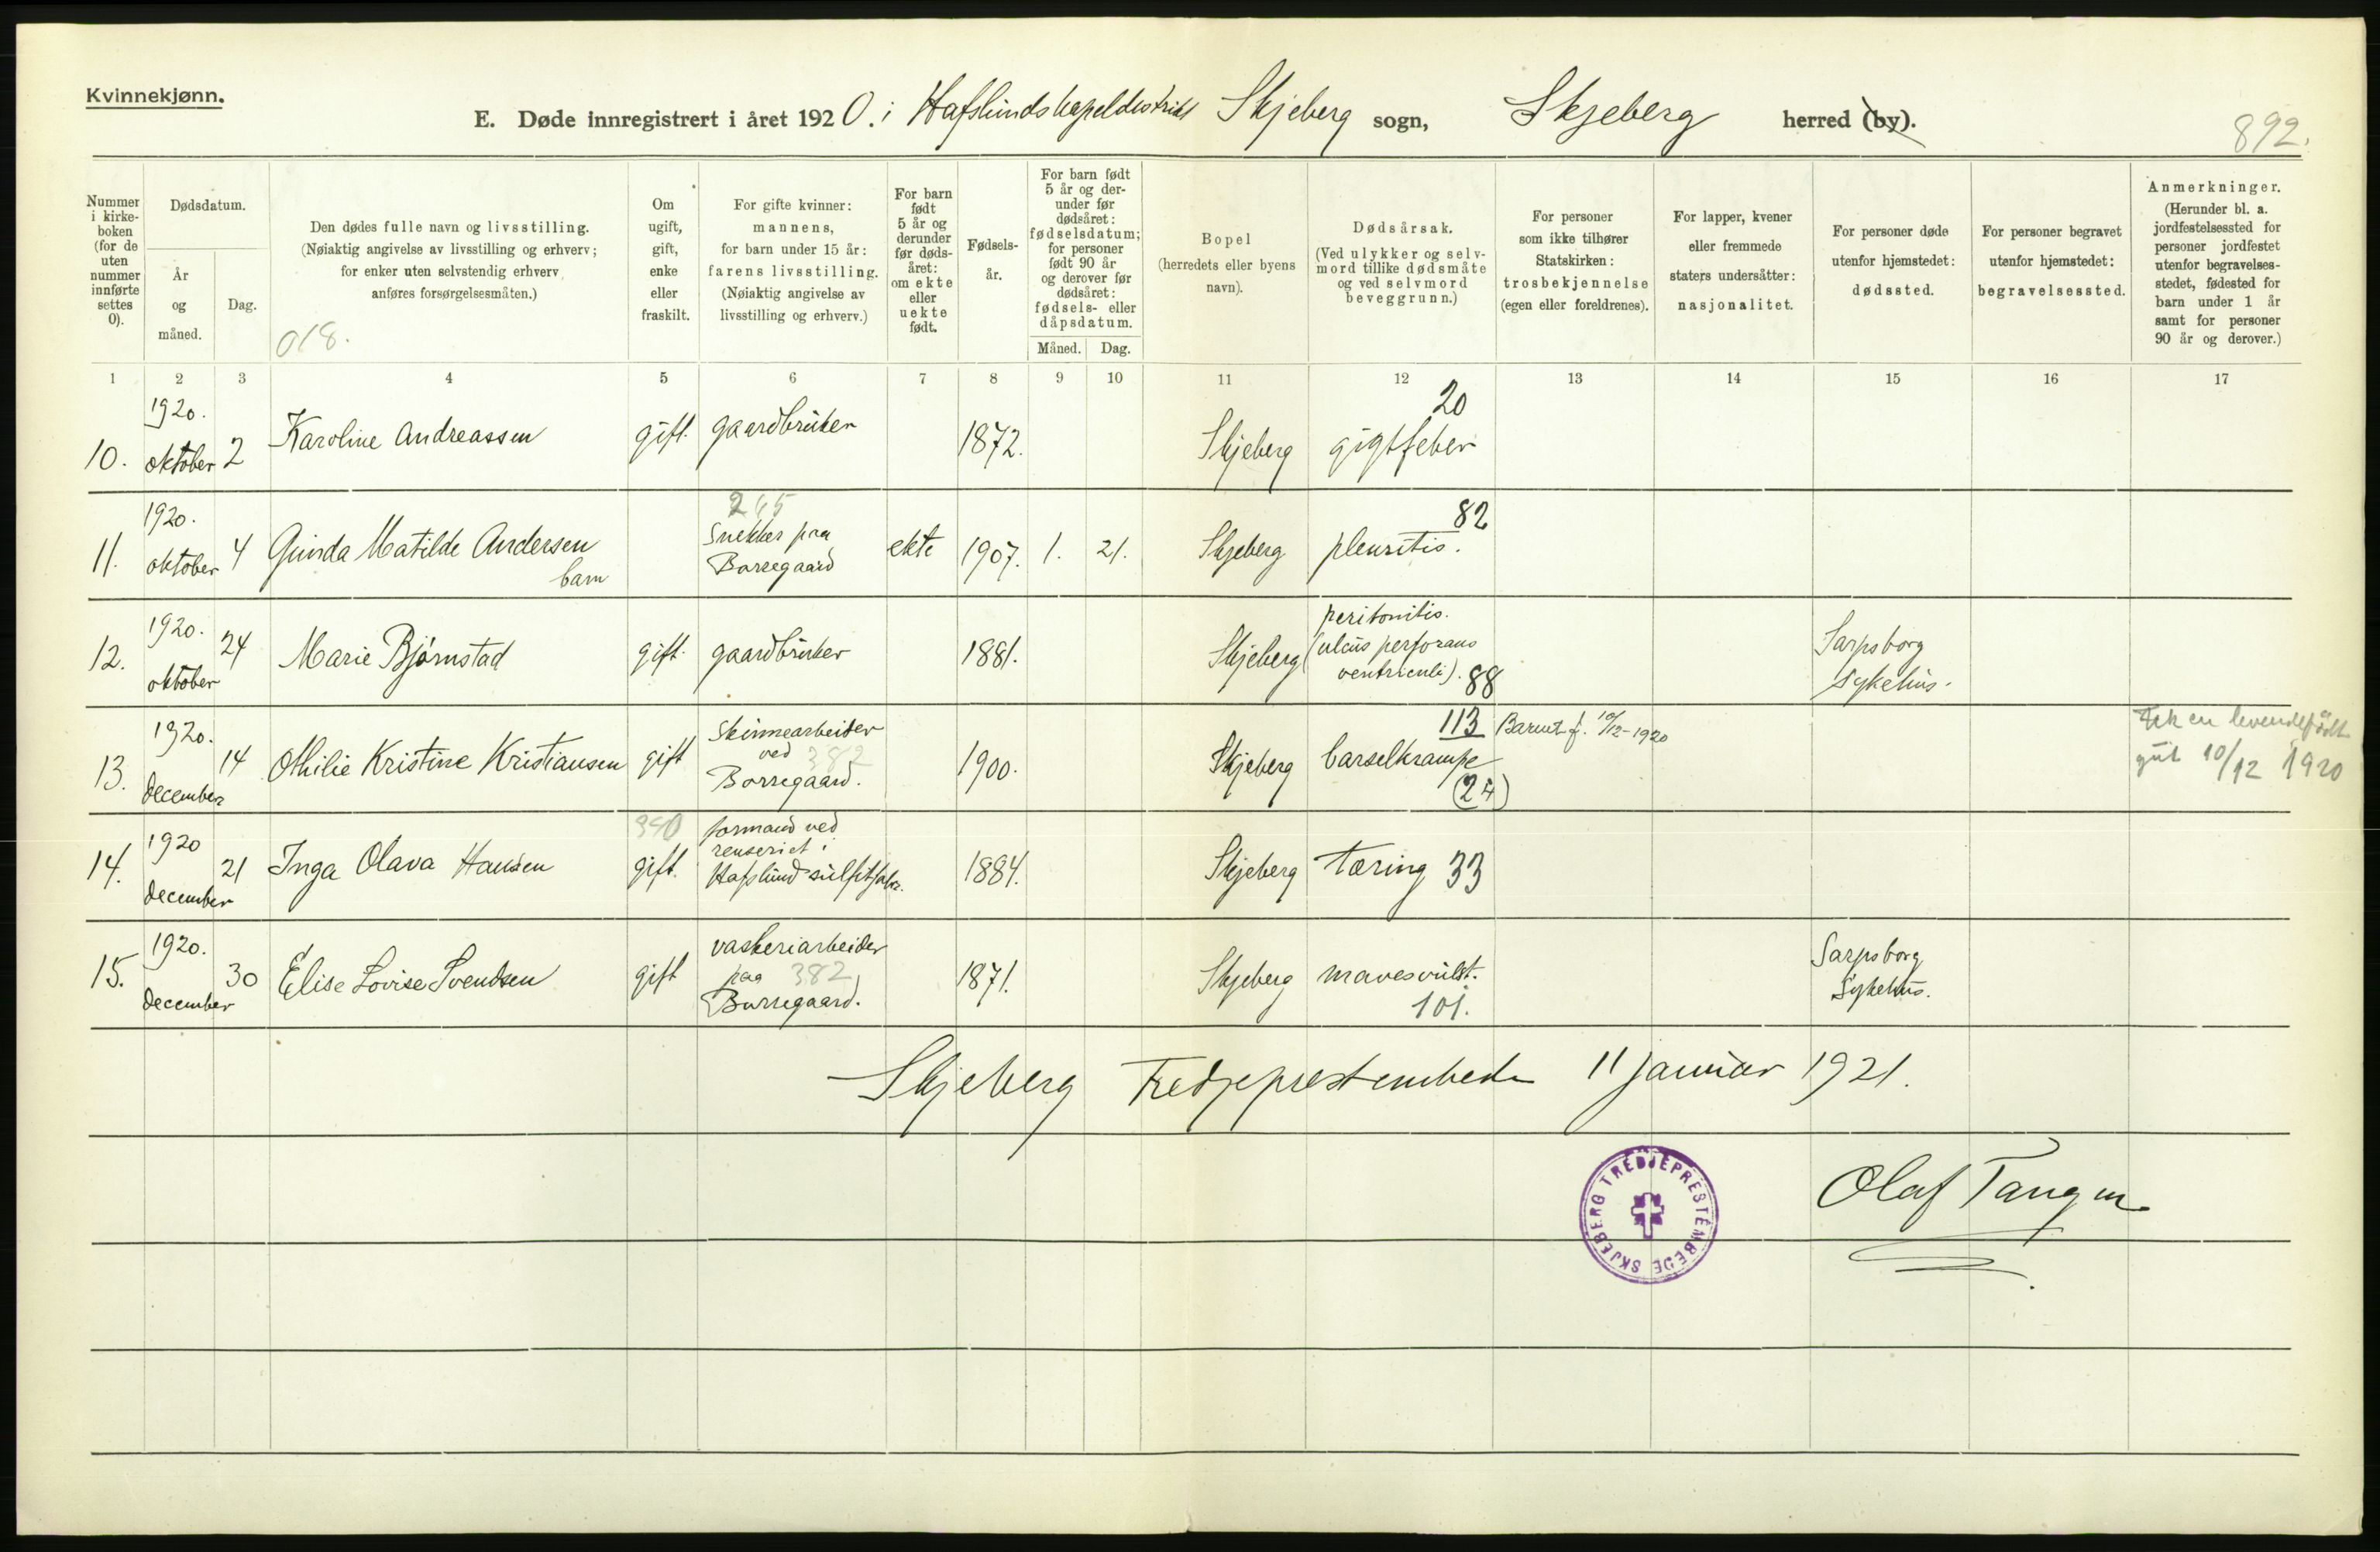 Kvinnekjønn.
E. Døde innregistrert i året 1920. i Hafslunds kapeldistrikt Skjeberg sogn, Skjeberg herred (by).
892.
Nummer i kirke-boken (for de uten nummer innførte settes 0).
Dødsdatum.
År og måned.
Dag.
Den dødes fulle navn og livsstilling.
(Nøiaktig angivelse av livsstilling og erhverv;
for enker uten selvstendig erhverv
anføres forsørgelsesmåten.)
018.
Om ugift, gift, enke eller fraskilt.
For gifte kvinner:
mannens,
for barn under 15 år:
farens livsstilling.
(Nøiaktig angivelse av
livsstilling og erhverv.)
For barn født 5 år og derunder før døds-året: om ekte eller uekte født.
Fødsels-år.
For barn født 5 år og der-under før dødsåret: fødselsdatum; for personer født 90 år og derover før dødsåret: fødsels- eller dåpsdatum.
Måned.
Dag.
Bopel
(herredets eller byens
navn).
Dødsårsak.
(Ved ulykker og selv-
mord tillike dødsmåte
og ved selvmord
beveggrunn.)
For personer
som ikke tilhører
Statskirken:
trosbekjennelse
(egen eller foreldrenes).
For lapper, kvener
eller fremmede
staters undersåtter:
nasjonalitet.
For personer døde
utenfor hjemstedet:
dødssted.
For personer begravet
utenfor hjemstedet:
begravelsessted.
Anmerkninger.
(Herunder bl. a.
jordfestelsessted for
personer jordfestet
utenfor begravelses-
stedet, fødested for
barn under 1 år
samt for personer
90 år og derover.)
1 2 3 4 5 6 7 8 9 10 11 12 13 14 15 16 17
10. 1920. oktober 2 Karoline Andreassen gift. gaardbruker 1872. Skjeberg gigtfeber 20
11. 1920. oktober 4 Gunda Matilde Andersen barn 265 Snekker paa Borregaard ekte 1907. 1. 21. Skjeberg pleuritis. 82
12. 1920. oktober 24 Marie Bjørnstad gift. gaardbruker 1881. Skjeberg peritonitis. (ulcus perforans ventriculi). 88 Sarpsborg sykehus.
13. 1920. december 14 Othilie Kristine Kristiansen gift Skinnearbeider ved 382 Borregaard. 1900. Skjeberg barselkrampe 113 (24) Barnet f. 10/12-1920 Fik en levendefødt gut 10/12 1920
14. 1920 december 21 Inga Olava Hansen 340 gift. formand ved renseriet i Hafslund sulfitfabr. 1884. Skjeberg Tæring 33
15. 1920. december 30 Elise Lovise Svendsen gift vaskeriarbeider paa 382 Borregaard. 1871. Skjeberg mavesvulst. 101. Sarpsborg Sykehus.
Skjeberg Tredjeprestembede 11 januar 1921.
SKJEBERG TREDJEPRESTEMBEDE
Olaf Tangen